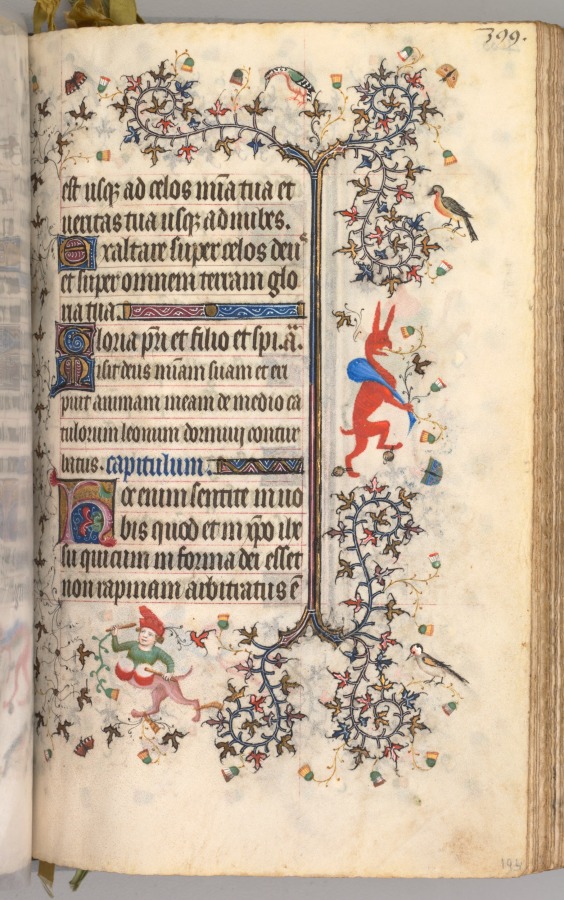 399.
est usq; ad celos mīa tua et
veritas tua usq; ad nubes.
Exaltare super celos deus
et super omnem terram glo
ria tua.
Gloria pr̄i et filio et spi. ā.
Misit deus mīam suam et eri
puit animam meam de medio ca
tulorum leonum dormivi contur
batus. capitulum.
Hoc enim sentite in uo
bis quod et in xp̄o ihe
su qui cum in forma dei esset
non rapinam arbitratus ē